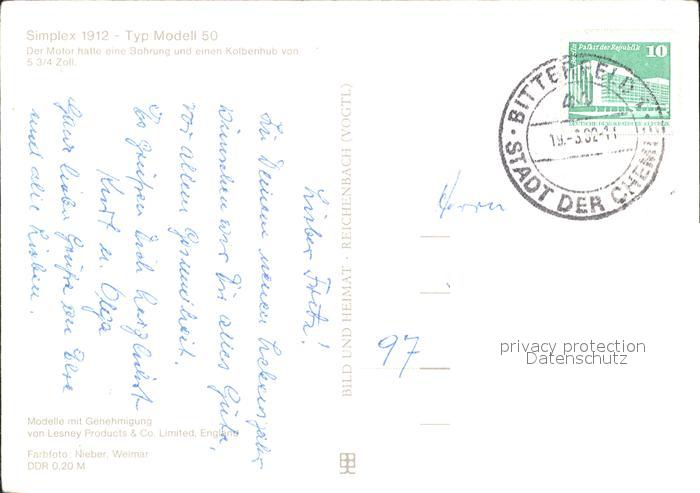 Simplex 1912 - Typ Modell 50
Der Motor hatte eine Bohrung und einen Kolbenhub von
5 3/4 Zoll.
Lieber Fritz!
Zu Deinem neuen Lebensjahr
wünschen wir Dir alles Gute,
vor allem Gesundheit.
Es grüßen Dich herzlichst
Kurt u. Olga
Ganz liebe Grüße an Elsa
und alle Lieben.
Modelle mit Genehmigung
von Lesney Products & Co. Limited, England
Farbfoto: Nieber, Weimar
DDR 0,20 M
BILD UND HEIMAT · REICHENBACH (VOGTL)
Palast der Republik 10
BITTERFELD
STADT DER CHEMIE
Herrn
97
privacy protection
Datenschutz